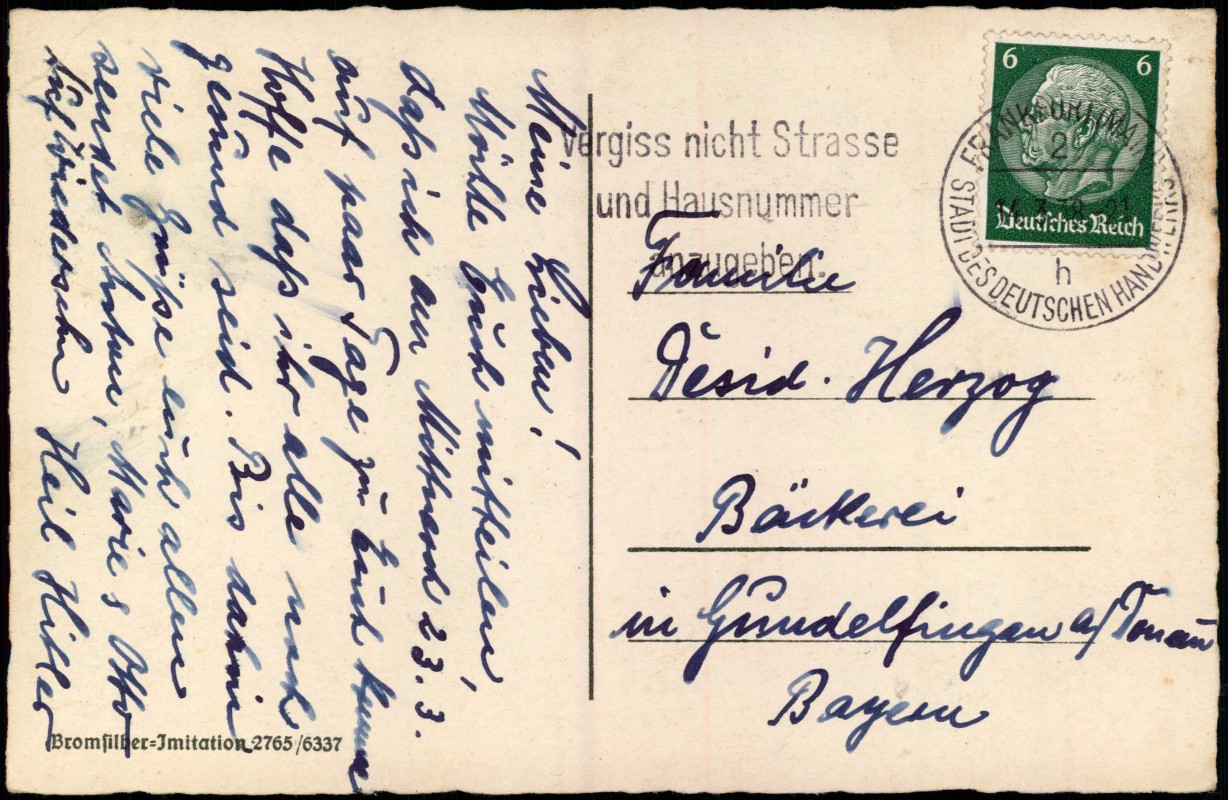 Meine Lieben!
Möchte Euch mitteilen,
daß ich am Mittwoch 23.3.
auf paar Tage zu Euch komme
Hoffe daß ihr alle noch
gesund seid. Bis dahin
viele Grüße euch allen
sendet Anton, Marie & Otto
Auf Wiedersehn Heil Hitler
Bromsilber=Imitation 2765/6337
Vergiss nicht Strasse
und Hausnummer
anzugeben.
6 6
Deutsches Reich
FRANKFURT (MAIN)
2
21
h
STADT DES DEUTSCHEN HANDWERKS
Familie
Desid. Herzog
Bäckerei
in Gundelfingen a/Donau
Bayern